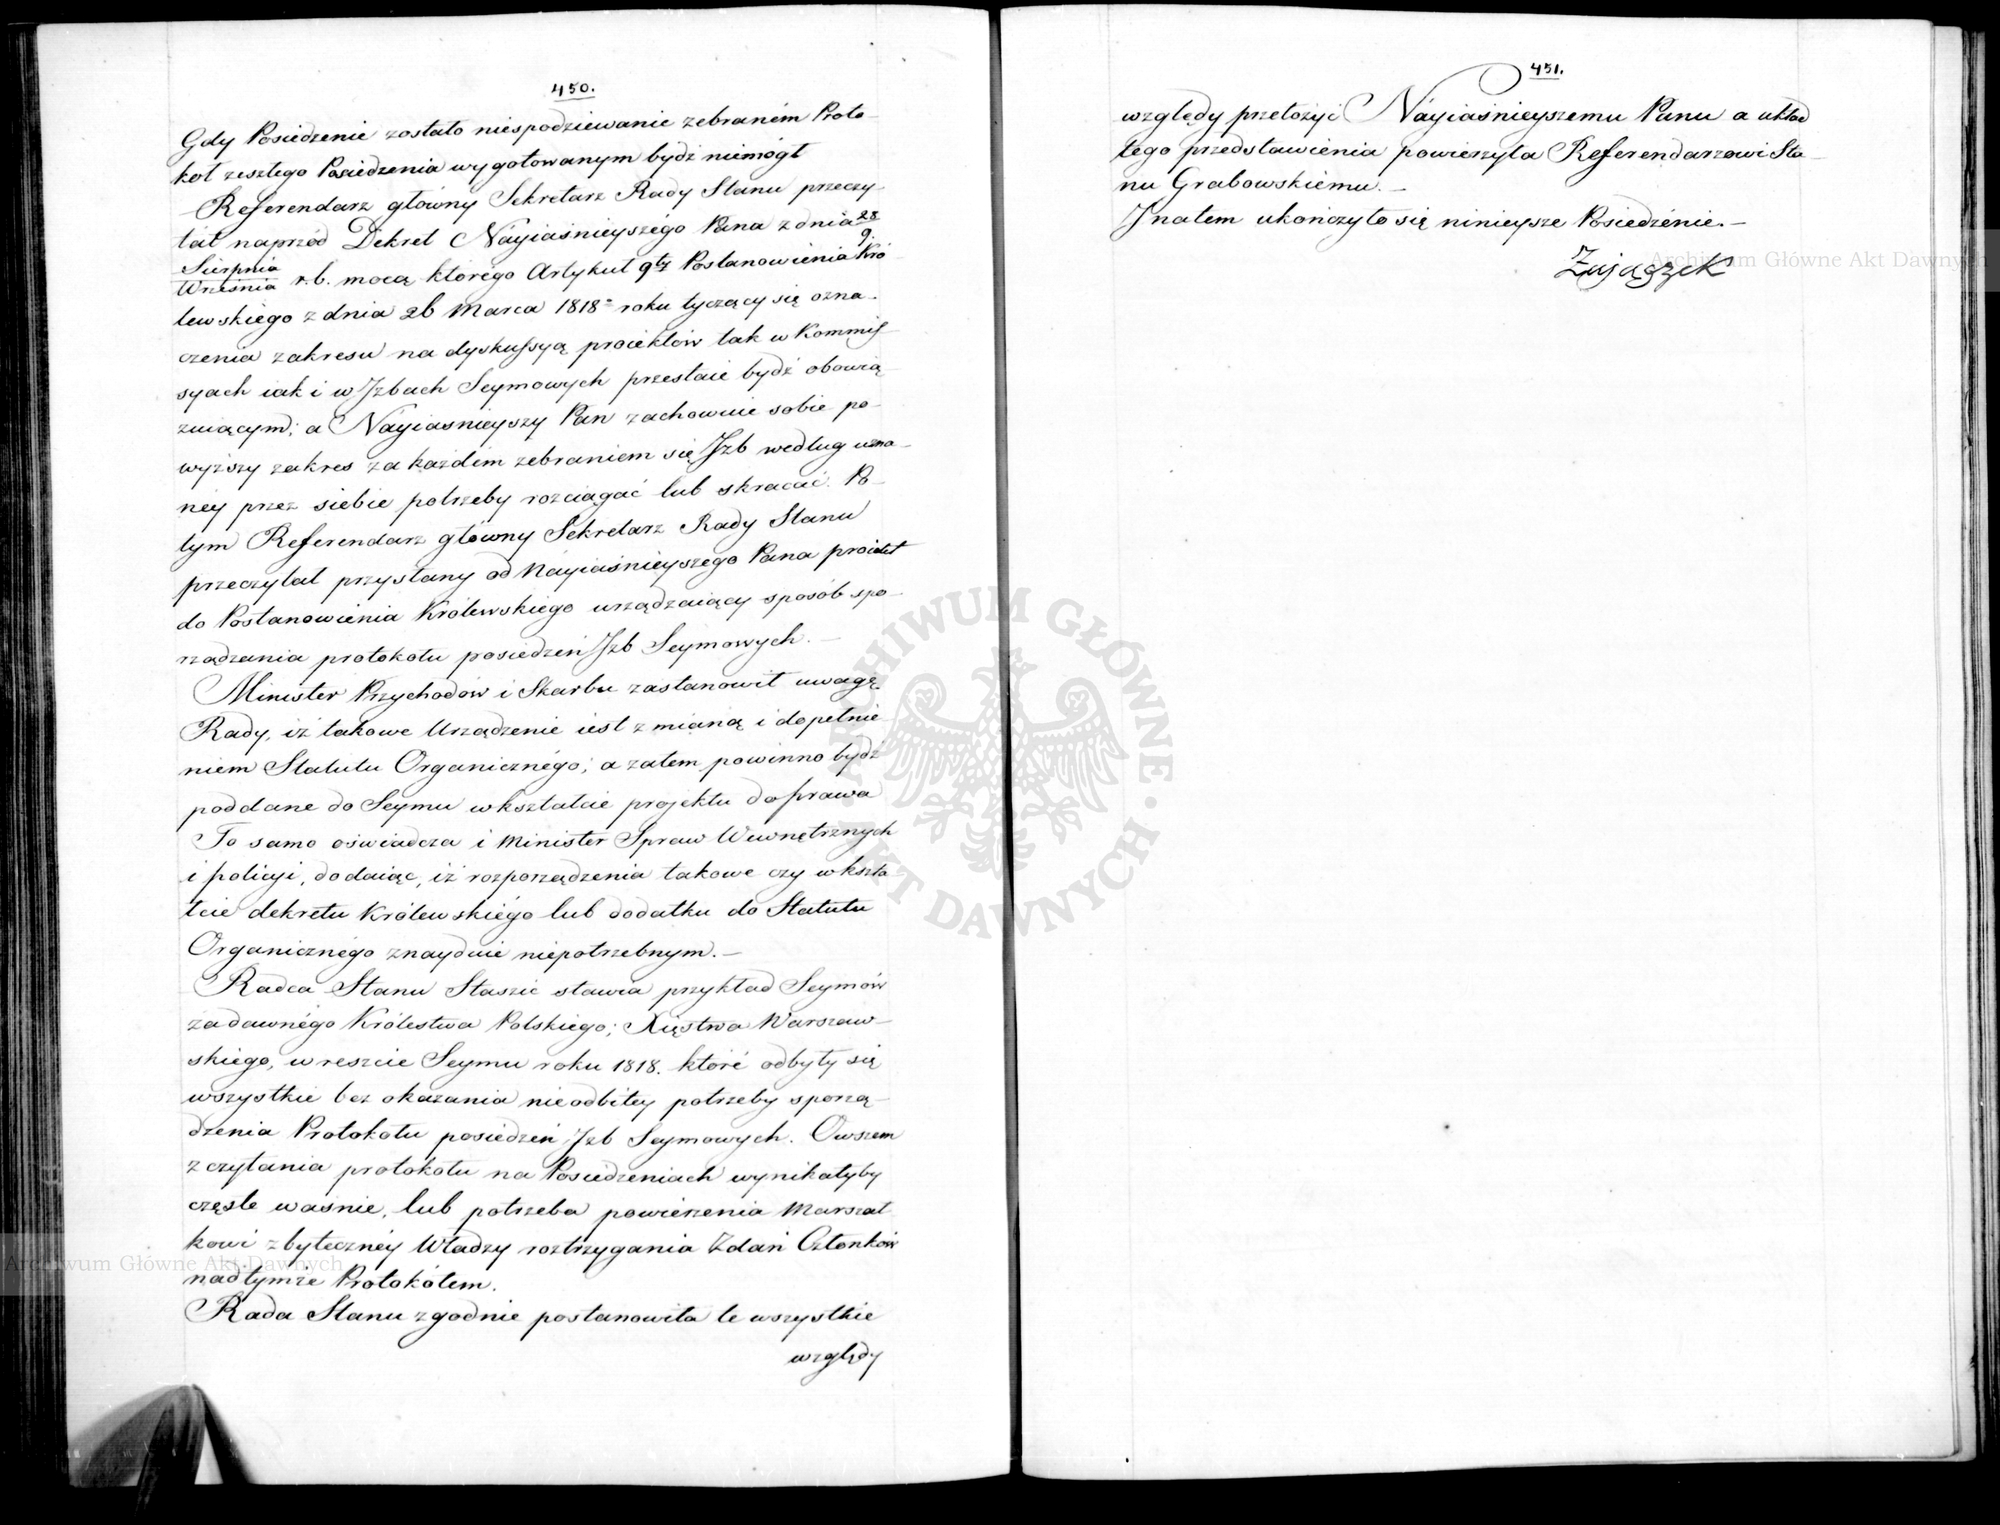 450.
Gdy Posiedzenie zostało niespodziewanie zebraném Proto-
kół zeszłego Posiedzenia wygotowanym bydź niemógł
Referendarz główny Sekretarz Rady Stanu przeczy-
tał naprzód Dekret Náyiaśnieyszégo Pana z dnia 28 Sierpnia / 9. Września
r.b. mocą którégo Artykuł 9ty Postanowienia Kró-
lewskiégo z dnia 26 Marca 1818 roku tyczący się ozna-
czenia zakresu na dyskussyą proiektów tak w Kommis-
syach iak i w Jzbach Seymowych przestaie bydź obowią-
zuiącym; a Náyiaśnieyszy Pan zachowuie sobie po-
wyższy zakres za każdém zebraniem się Jzb według uzna-
néy przez siebie potrzeby rozciągać lub skracać. Po-
tym Referendarz główny Sekretarz Rady Stanu
przeczytał przysłany od Nayiaśnieyszego Pana proiekt
do Postanowienia Królewskiégo urządzaiący sposób spo-
rządzania protokołu posiedzeń Jzb Seymowych. —
Minister Przychodów i Skarbu zastanowił uwagę
Rady, iż takowe Urządzenie iest zmianą i dopełnie-
niem Statutu Organicznégo; a zatem powinno bydź
poddane do Seymu w kształcie projektu do prawa
To samo oświadcza i Minister Spraw Wewnętrznych
i policyi, dodaiąc, iż rozporządzenia takowe czy w kszta-
łcie dekretu Królewskiégo lub dodatku do Statutu
Organicznégo znayduie niepotrzebnym. —
Radca Stanu Staszic stawia przykład Seymów
za dawnégo Królestwa Polskiego; Xięstwa Warszaw-
skiego, wreszcie Seymu roku 1818. któré odbyły się
wszystkie bez okazania nieodbitey potrzeby sporzą-
dzenia Protokołu posiedzeń Jzb Seymowych. Owszem
z czytania protokołu na Posiedzeniach wynikałyby
częste waśnie, lub potrzeba powierzenia Marszał-
kowi zbytecznéy Władzy roztrzygania Zdań Członków
nad tymże Protokółem.
Rada Stanu zgodnie postanowiła te wszystkie
względy
451.
względy przełożyć Náyiaśnieyszemu Panu a układ
tego przedstawienia powierzyła Referendarzowi Sta-
nu Grabowskiému. —
Jnatem ukończyło się ninieysze Posiedzénie. —
Zajączek
ARCHIWUM GŁÓWNE AKT DAWNYCH
Archiwum Główne Akt Dawnych
Archiwum Główne Akt Dawnych